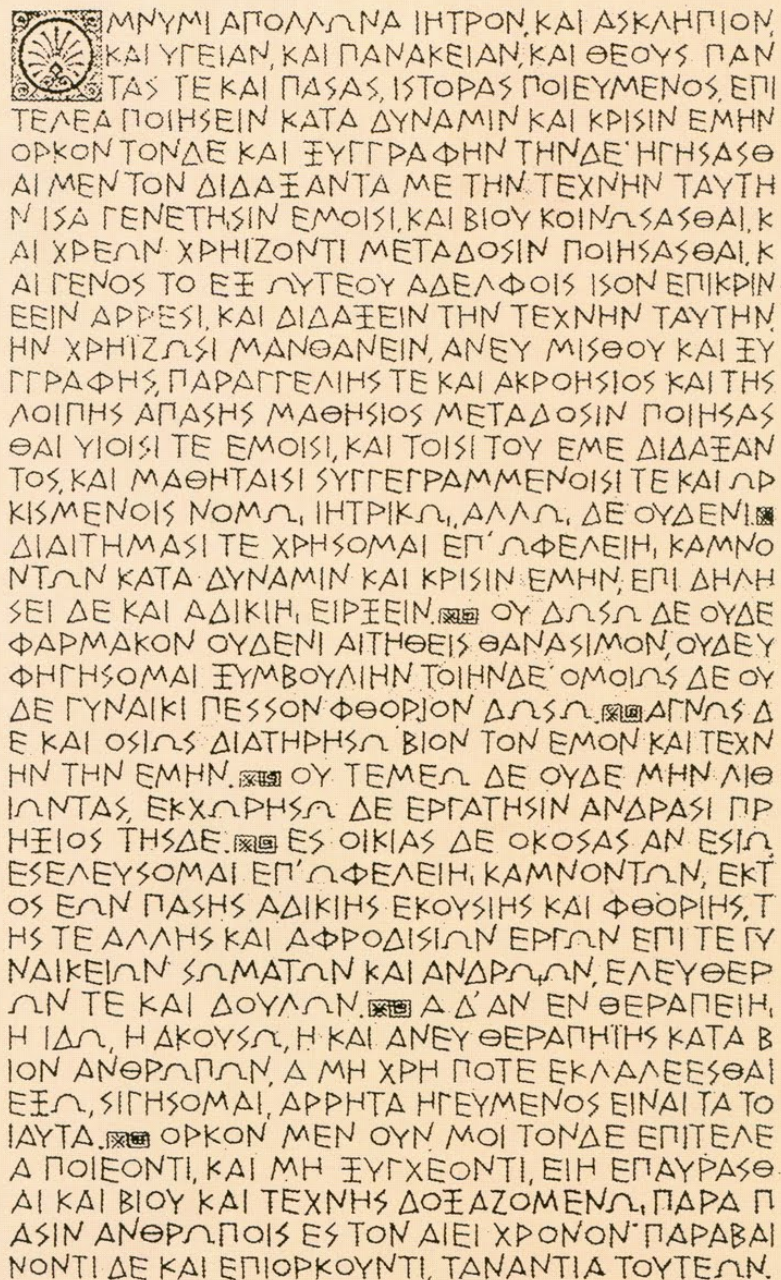 ΜΝΥΜΙ ΑΠΟΛΛΩΝΑ ΙΗΤΡΟΝ, ΚΑΙ ΑΣΚΛΗΠΙΟΝ,
ΚΑΙ ΥΓΕΙΑΝ, ΚΑΙ ΠΑΝΑΚΕΙΑΝ, ΚΑΙ ΘΕΟΥΣ ΠΑΝ
ΤΑΣ ΤΕ ΚΑΙ ΠΑΣΑΣ, ΙΣΤΟΡΑΣ ΠΟΙΕΥΜΕΝΟΣ, ΕΠΙ
ΤΕΛΕΑ ΠΟΙΗΣΕΙΝ ΚΑΤΑ ΔΥΝΑΜΙΝ ΚΑΙ ΚΡΙΣΙΝ ΕΜΗΝ
ΟΡΚΟΝ ΤΟΝΔΕ ΚΑΙ ΞΥΓΓΡΑΦΗΝ ΤΗΝΔΕ· ΗΓΗΣΑΣΘ
ΑΙ ΜΕΝ ΤΟΝ ΔΙΔΑΞΑΝΤΑ ΜΕ ΤΗΝ ΤΕΧΝΗΝ ΤΑΥΤΗ
Ν ΙΣΑ ΓΕΝΕΤΗΣΙΝ ΕΜΟΙΣΙ, ΚΑΙ ΒΙΟΥ ΚΟΙΝΩΣΑΣΘΑΙ, Κ
ΑΙ ΧΡΕΩΝ ΧΡΗΙΖΟΝΤΙ ΜΕΤΑΔΟΣΙΝ ΠΟΙΗΣΑΣΘΑΙ, Κ
ΑΙ ΓΕΝΟΣ ΤΟ ΕΞ ΩΥΤΕΟΥ ΑΔΕΛΦΟΙΣ ΙΣΟΝ ΕΠΙΚΡΙΝ
ΕΕΙΝ ΑΡΡΕΣΙ, ΚΑΙ ΔΙΔΑΞΕΙΝ ΤΗΝ ΤΕΧΝΗΝ ΤΑΥΤΗΝ
ΗΝ ΧΡΗΪΖΩΣΙ ΜΑΝΘΑΝΕΙΝ, ΑΝΕΥ ΜΙΣΘΟΥ ΚΑΙ ΞΥ
ΓΓΡΑΦΗΣ, ΠΑΡΑΓΓΕΛΙΗΣ ΤΕ ΚΑΙ ΑΚΡΟΗΣΙΟΣ ΚΑΙ ΤΗΣ
ΛΟΙΠΗΣ ΑΠΑΣΗΣ ΜΑΘΗΣΙΟΣ ΜΕΤΑΔΟΣΙΝ ΠΟΙΗΣΑΣ
ΘΑΙ ΥΙΟΙΣΙ ΤΕ ΕΜΟΙΣΙ, ΚΑΙ ΤΟΙΣΙ ΤΟΥ ΕΜΕ ΔΙΔΑΞΑΝ
ΤΟΣ, ΚΑΙ ΜΑΘΗΤΑΙΣΙ ΣΥΓΓΕΓΡΑΜΜΕΝΟΙΣΙ ΤΕ ΚΑΙ ΩΡ
ΚΙΣΜΕΝΟΙΣ ΝΟΜΩͺ ΙΗΤΡΙΚΩͺ, ΑΛΛΩͺ ΔΕ ΟΥΔΕΝΙ.
ΔΙΑΙΤΗΜΑΣΙ ΤΕ ΧΡΗΣΟΜΑΙ ΕΠ' ΩΦΕΛΕΙΗͺ ΚΑΜΝΟ
ΝΤΩΝ ΚΑΤΑ ΔΥΝΑΜΙΝ ΚΑΙ ΚΡΙΣΙΝ ΕΜΗΝ, ΕΠΙ ΔΗΛΗ
ΣΕΙ ΔΕ ΚΑΙ ΑΔΙΚΙΗͺ ΕΙΡΞΕΙΝ. ΟΥ ΔΩΣΩ ΔΕ ΟΥΔΕ
ΦΑΡΜΑΚΟΝ ΟΥΔΕΝΙ ΑΙΤΗΘΕΙΣ ΘΑΝΑΣΙΜΟΝ, ΟΥΔΕ Υ
ΦΗΓΗΣΟΜΑΙ ΞΥΜΒΟΥΛΙΗΝ ΤΟΙΗΝΔΕ· ΟΜΟΙΩΣ ΔΕ ΟΥ
ΔΕ ΓΥΝΑΙΚΙ ΠΕΣΣΟΝ ΦΘΟΡΙΟΝ ΔΩΣΩ. ΑΓΝΩΣ Δ
Ε ΚΑΙ ΟΣΙΩΣ ΔΙΑΤΗΡΗΣΩ ΒΙΟΝ ΤΟΝ ΕΜΟΝ ΚΑΙ ΤΕΧΝ
ΗΝ ΤΗΝ ΕΜΗΝ. ΟΥ ΤΕΜΕΩ ΔΕ ΟΥΔΕ ΜΗΝ ΛΙΘ
ΙΩΝΤΑΣ, ΕΚΧΩΡΗΣΩ ΔΕ ΕΡΓΑΤΗΣΙΝ ΑΝΔΡΑΣΙ ΠΡ
ΗΞΙΟΣ ΤΗΣΔΕ. ΕΣ ΟΙΚΙΑΣ ΔΕ ΟΚΟΣΑΣ ΑΝ ΕΣΙΩ
ΕΣΕΛΕΥΣΟΜΑΙ ΕΠ' ΩΦΕΛΕΙΗͺ ΚΑΜΝΟΝΤΩΝ, ΕΚΤ
ΟΣ ΕΩΝ ΠΑΣΗΣ ΑΔΙΚΙΗΣ ΕΚΟΥΣΙΗΣ ΚΑΙ ΦΘΟΡΙΗΣ, Τ
ΗΣ ΤΕ ΑΛΛΗΣ ΚΑΙ ΑΦΡΟΔΙΣΙΩΝ ΕΡΓΩΝ ΕΠΙ ΤΕ ΓΥ
ΝΑΙΚΕΙΩΝ ΣΩΜΑΤΩΝ ΚΑΙ ΑΝΔΡΩͺΩΝ, ΕΛΕΥΘΕΡ
ΩΝ ΤΕ ΚΑΙ ΔΟΥΛΩΝ. Α Δ' ΑΝ ΕΝ ΘΕΡΑΠΕΙΗͺ
Η ΙΔΩ, Η ΑΚΟΥΣΩ, Η ΚΑΙ ΑΝΕΥ ΘΕΡΑΠΗΪΗΣ ΚΑΤΑ Β
ΙΟΝ ΑΝΘΡΩΠΩΝ, Α ΜΗ ΧΡΗ ΠΟΤΕ ΕΚΛΑΛΕΕΣΘΑΙ
ΕΞΩ, ΣΙΓΗΣΟΜΑΙ, ΑΡΡΗΤΑ ΗΓΕΥΜΕΝΟΣ ΕΙΝΑΙ ΤΑ ΤΟ
ΙΑΥΤΑ. ΟΡΚΟΝ ΜΕΝ ΟΥΝ ΜΟΙ ΤΟΝΔΕ ΕΠΙΤΕΛΕ
Α ΠΟΙΕΟΝΤΙ, ΚΑΙ ΜΗ ΞΥΓΧΕΟΝΤΙ, ΕΙΗ ΕΠΑΥΡΑΣΘ
ΑΙ ΚΑΙ ΒΙΟΥ ΚΑΙ ΤΕΧΝΗΣ ΔΟΞΑΖΟΜΕΝΩͺ ΠΑΡΑ Π
ΑΣΙΝ ΑΝΘΡΩΠΟΙΣ ΕΣ ΤΟΝ ΑΙΕΙ ΧΡΟΝΟΝ· ΠΑΡΑΒΑΙ
ΝΟΝΤΙ ΔΕ ΚΑΙ ΕΠΙΟΡΚΟΥΝΤΙ, ΤΑΝΑΝΤΙΑ ΤΟΥΤΕΩΝ.